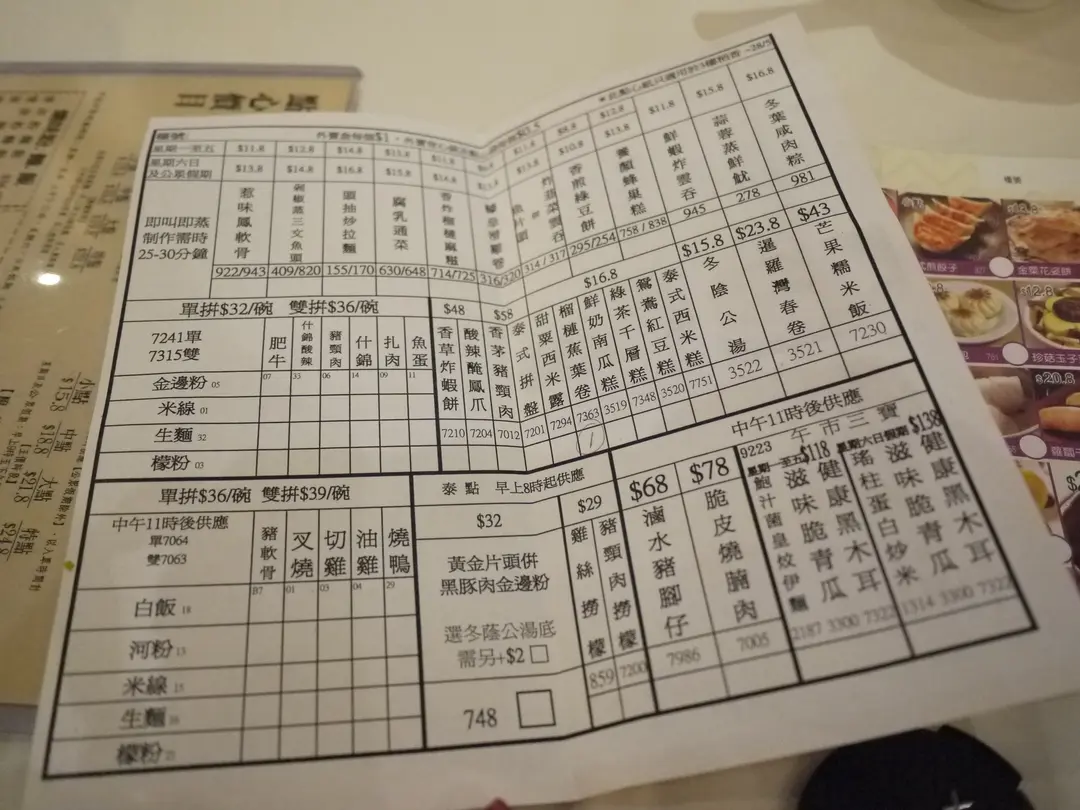 點心價目
檯號:
外賣盒每個$1
星期一至五 $11.8 $12.8 $14.8 $13.8
星期六日及公眾假期 $13.8 $14.8 $16.8 $15.8
$8.8 $12.8 $11.8 $15.8 $16.8
$10.8 $13.8
即叫即蒸
制作需時
25-30分鐘
惹味鳳軟骨
剁椒蒸三文魚頭
頭抽炒拉麵
腐乳通菜
香煎綠豆餅
養顏蜂巢糕
鮮蝦炸雲吞
蒜蓉蒸鮮魷
冬葉咸肉粽
922/943 409/820 155/170 630/648 714/725 316/320 314/317 295/254 758/838 945 278 981
單拼$32/碗 雙拼$36/碗
7241單
7315雙
肥牛
什錦酸辣
豬頸肉
什錦
扎肉
魚蛋
金邊粉 05
07 33 06 14 09 11
米線 01
生麵 32
檬粉 03
$48 $58 $16.8 $15.8 $23.8 $43
香草炸蝦餅
酸辣醃鳳爪
香茅豬頸肉
泰式拼盤
甜粟西米露
榴槤蕉葉卷
鮮奶南瓜糕
綠茶千層糕
鴛鴦紅豆糕
泰式西米糕
冬陰公湯
暹羅灣春卷
芒果糯米飯
7210 7204 7012 7201 7294 7363 3519 7348 3520 7751 3522 3521 7230
1
單拼$36/碗 雙拼$39/碗
中午11時後供應
單7064
雙7063
豬軟骨
叉燒
切雞
油雞
燒鴨
B7 01 03 04 29
白飯 18
河粉 13
米線 15
生麵 16
檬粉 21
泰點 早上8時起供應
$32
黃金片頭併
黑豚肉金邊粉
選冬蔭公湯底
需另+$2
748
$29
雞絲撈檬
豬頸肉撈檬
859 7200
中午11時後供應
$68
滷水豬腳仔
7986
$78
脆皮燒腩肉
7005
9223 午市三寶
星期一至五$118
星期六日假期 $138
鮑汁菌皇炆伊麵
滋味脆青瓜
健康黑木耳
2187 3300 7322
瑤柱蛋白炒米
滋味脆青瓜
健康黑木耳
1314 3300 7322
小點 $15.8
中點 $18.8
大點 $21.8
特點 $24.8
檯號
金菜花瓷餅
珍菇玉子
$20.8